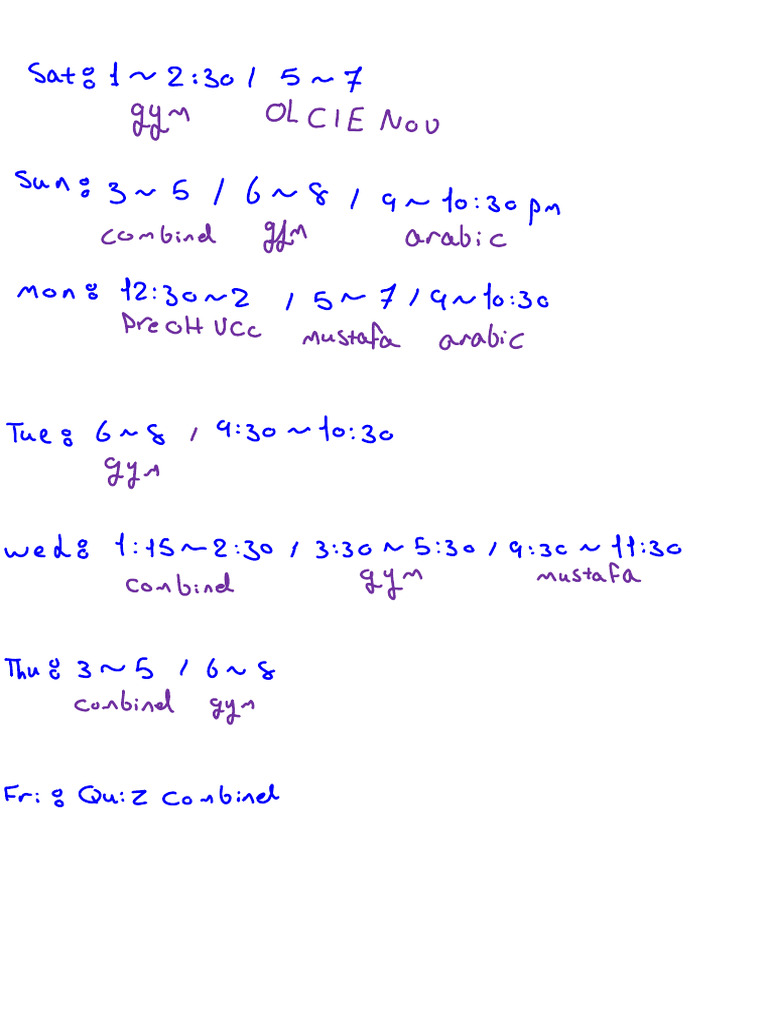 Sat: 1 ~ 2:30 / 5 ~ 7
gym OL CIE Nov
Sun: 3 ~ 5 / 6 ~ 8 / 9 ~ 10:30 pm
combind gym arabic
mon: 12:30 ~ 2 / 5 ~ 7 / 9 ~ 10:30
Pre OH UCC mustafa arabic
Tue: 6 ~ 8 / 9:30 ~ 10:30
gym
wed: 1:15 ~ 2:30 / 3:30 ~ 5:30 / 9:30 ~ 11:30
combind gym mustafa
Thu: 3 ~ 5 / 6 ~ 8
combind gym
Fri: Quiz combind